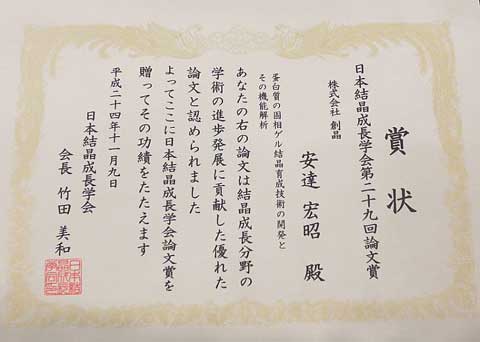 賞状
日本結晶成長学会第二十九回論文賞
株式会社 創晶
安達 宏昭 殿
蛋白質の固相ゲル結晶育成技術の開発と
その機能解析
あなたの右の論文は結晶成長分野の
学術の進歩発展に貢献した優れた
論文と認められました
よってここに日本結晶成長学会論文賞を
贈ってその功績をたたえます
平成二十四年十一月九日
日本結晶成長学会
会長 竹田 美和